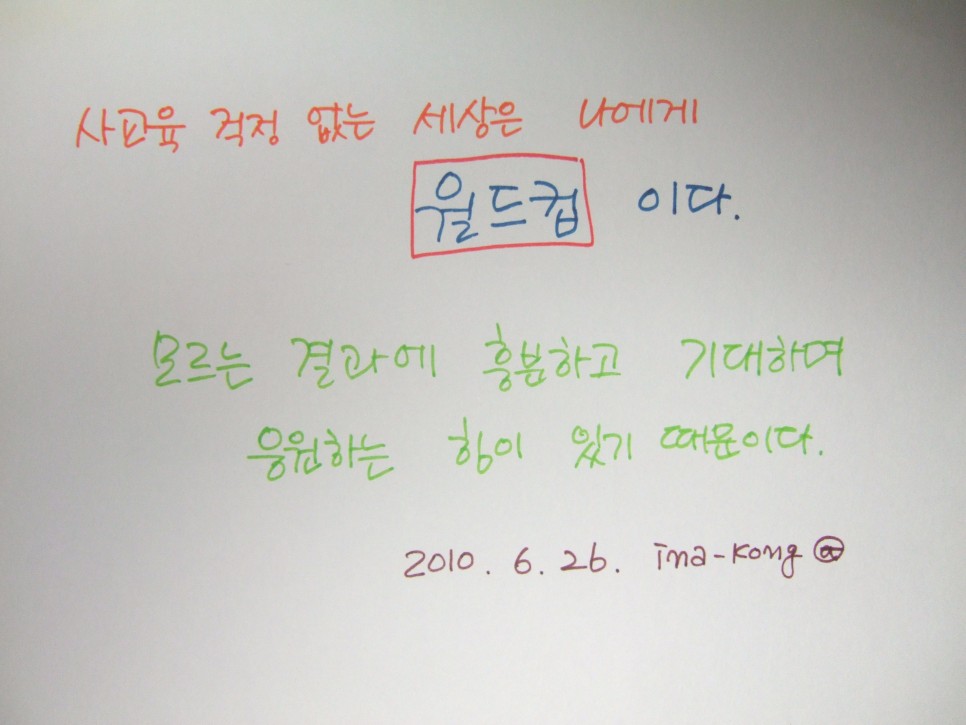 사교육 걱정 없는 세상은 나에게
월드컵 이다.
모르는 결과에 흥분하고 기대하며
응원하는 힘이 있기 때문이다.
2010. 6. 26. ina-kong